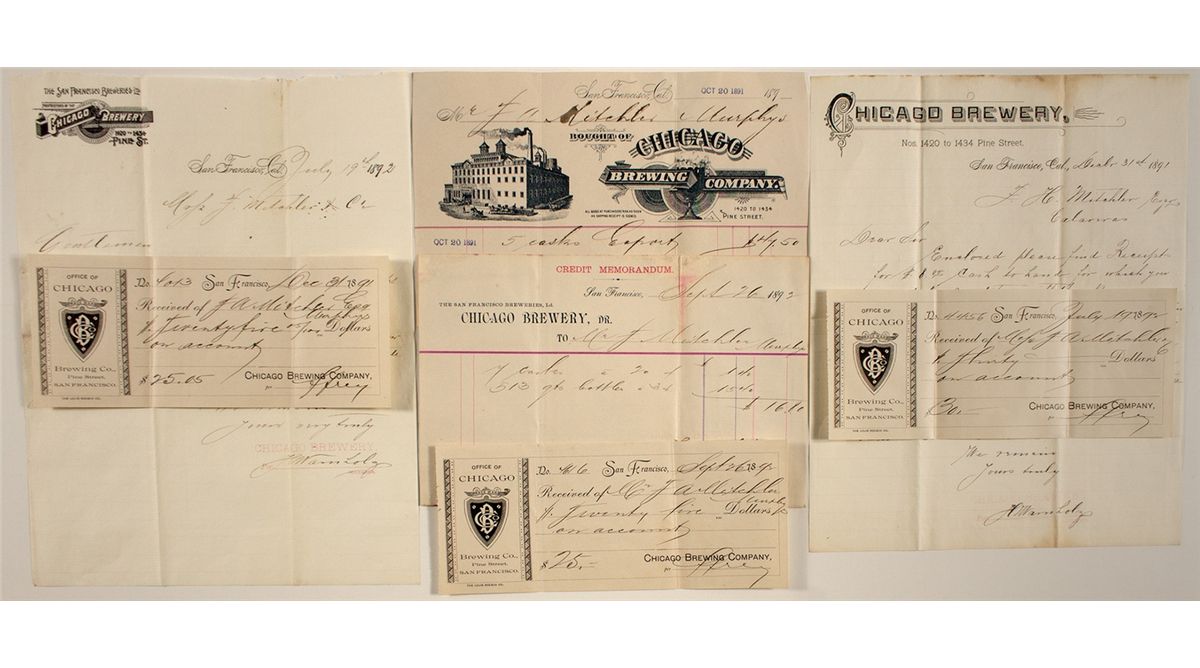 THE SAN FRANCISCO BREWERIES Ld
PROPRIETORS OF THE
CHICAGO BREWERY
1420 TO 1434
PINE ST.
San Francisco, Cal. July 19th 1892
Mess J. Mitchler & Co
Gentlemen
OFFICE OF
CHICAGO
Brewing Co.,
Pine Street,
SAN FRANCISCO.
No. 4013 San Francisco, Dec 31 1891
Received of J A Mitchler Esq
Murphys
Twenty five Dollars
on account
$25.05 CHICAGO BREWING COMPANY,
per Frey
THE LOUIS ROESCH CO.
Yours very truly
CHICAGO BREWERY
H Warnholz
San Francisco, Cal. OCT 20 1891 189
Mr J A Mitchler Murphys
BOUGHT OF
CHICAGO
BREWING COMPANY.
1420 TO 1434
PINE STREET.
OCT 20 1891 5 casks Export $4,50
CREDIT MEMORANDUM.
San Francisco, Sept 26 1892
THE SAN FRANCISCO BREWERIES, Ld.
CHICAGO BREWERY, DR.
TO Mr J Mitchler Murphys
7 casks a 20 $ 1.40
513 bottles
$ 16
OFFICE OF
CHICAGO
Brewing Co.,
Pine Street,
SAN FRANCISCO.
No. San Francisco, Sept 26 1892
Received of Mr J A Mitchler
Murphys
Twenty five Dollars
on account
$25.- CHICAGO BREWING COMPANY,
per Frey
THE LOUIS ROESCH CO.
CHICAGO BREWERY,
Nos. 1420 to 1434 Pine Street.
San Francisco, Cal., Decbr 31st 1891
F. H. Mitchler Esq
Calaveras
Dear Sir
Enclosed please find Receipt
for $ cash to hand for which you
OFFICE OF
CHICAGO
Brewing Co.,
Pine Street,
SAN FRANCISCO.
No. 4456 San Francisco, July 19 1892
Received of Mess J A Mitchler &
Thirty Dollars
on account
$30.- CHICAGO BREWING COMPANY,
per Frey
THE LOUIS ROESCH CO.
We remain
Yours truly
H Warnholz